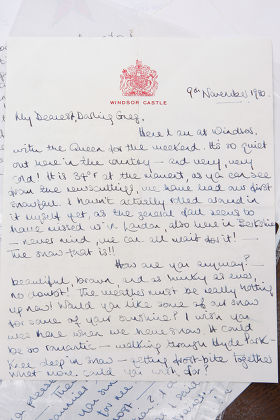 WINDSOR CASTLE
9th November 1980.
My Dearest, Darling Greg,
Here I am at Windsor
with the Queen for the weekend. It's so quiet
out here in the country - and very, very
cold! It is 34°F at the moment, as you can see
from the newscutting, we have had our first
snowfall. I haven't actually rolled around in
it myself yet, as the general fall seems to
have missed us in London, also here in Berkshire
- never mind, we can all wait for it! -
the snow that is!!
How are you anyway? -
beautiful, brown, and as hunky as ever,
no doubt! The weather must be really hotting
up now! Would you like some of our snow
for some of your sunshine? I wish you
was here when we have snow. It could
be so romantic - walking through Hyde Park -
knee deep in snow - getting frost-bite together
what more could you wish for?